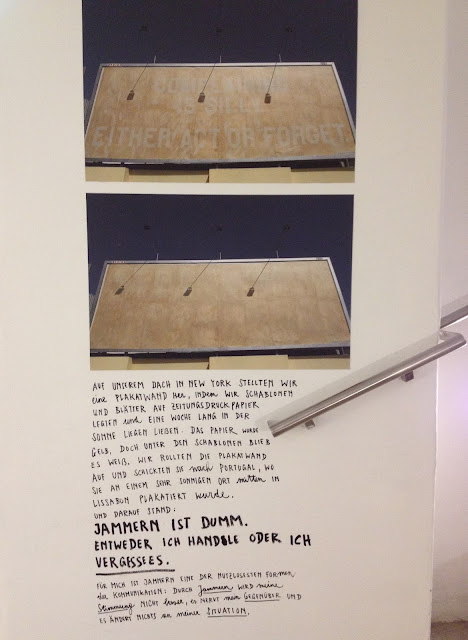 COMPLAINING
IS SILLY.
EITHER ACT OR FORGET.
AUF UNSEREM DACH IN NEW YORK STELLTEN WIR
eine PLAKATWAND her, indem WIR SCHABLONEN
UND BLÄTTER AUF ZEITUNGSDRUCKPAPIER
LEGTEN und EINE WOCHE LANG IN DER
SONNE LIEGEN LIEẞEN. DAS PAPIER wurde
GELB, DOCH UNTER DEN SCHABLONEN BLIEB
ES WEIẞ. WIR ROLLTEN DIE PLAKATWAND
AUF UND SCHICKTEN SIE nach PORTUGAL, WO
SIE AN EINEM SEHR SONNIGEN ORT mitten IN
LISSABON PLAKATIERT wurde.
UND DARAUF STAND:
JAMMERN IST DUMM.
ENTWEDER ICH HANDLE ODER ICH
VERGESSE ES.
FÜR MICH IST JAMMERN EINE DER NUTZLOSESTEN FORMEN
der KOMMUNIKATION: DURCH Jammern WIRD meine
Stimmung NICHT besser, ES NERVT mein GEGENÜBER UND
ES ÄNDERT NICHTS an meiner SITUATION.